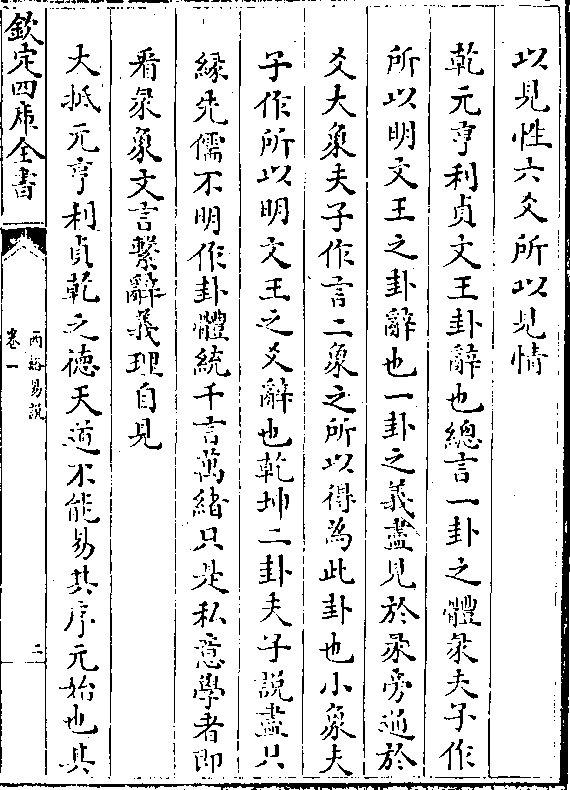 以見性六爻所以見情
乾元亨利貞文王卦辭也總言一卦之體彖夫子作
所以明文王之卦辭也一卦之義盡見於彖旁通於
爻大象夫子作言二象之所以得為此卦也小象夫
子作所以明文王之爻辭也乾坤二卦夫子説盡只
緣先儒不明作卦體統千言萬緒只是私意學者即
看彖象文言繫辭義理自見
大抵元亨利貞乾之德天道不能易其序元始也其
欽定四庫全書
西谿易説
卷一
二